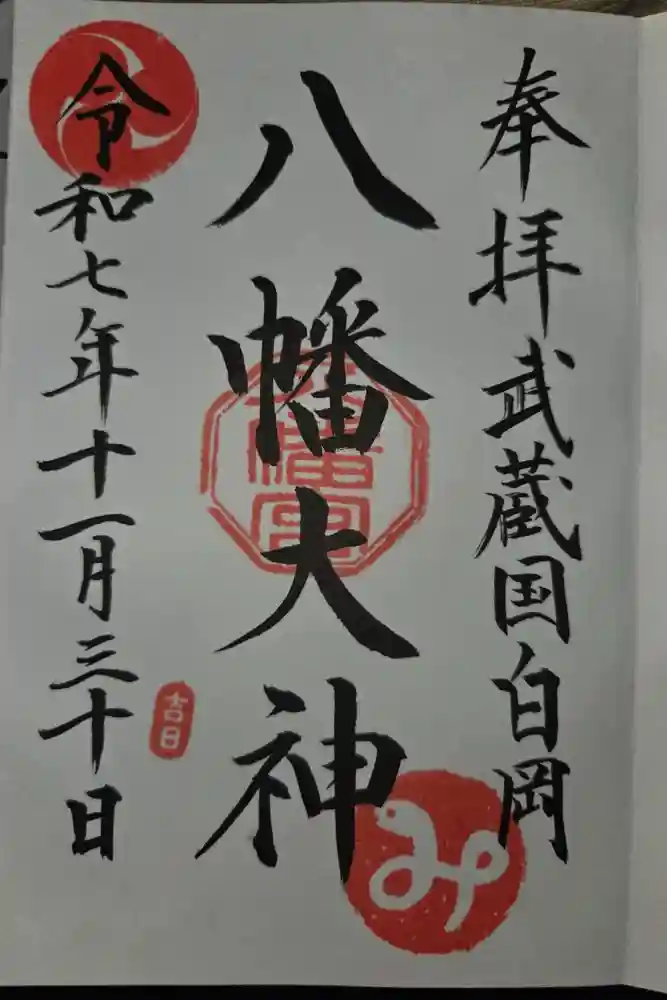 奉拝武蔵国白岡
八幡大神
八幡宮
令和七年十一月三十日
吉日
み